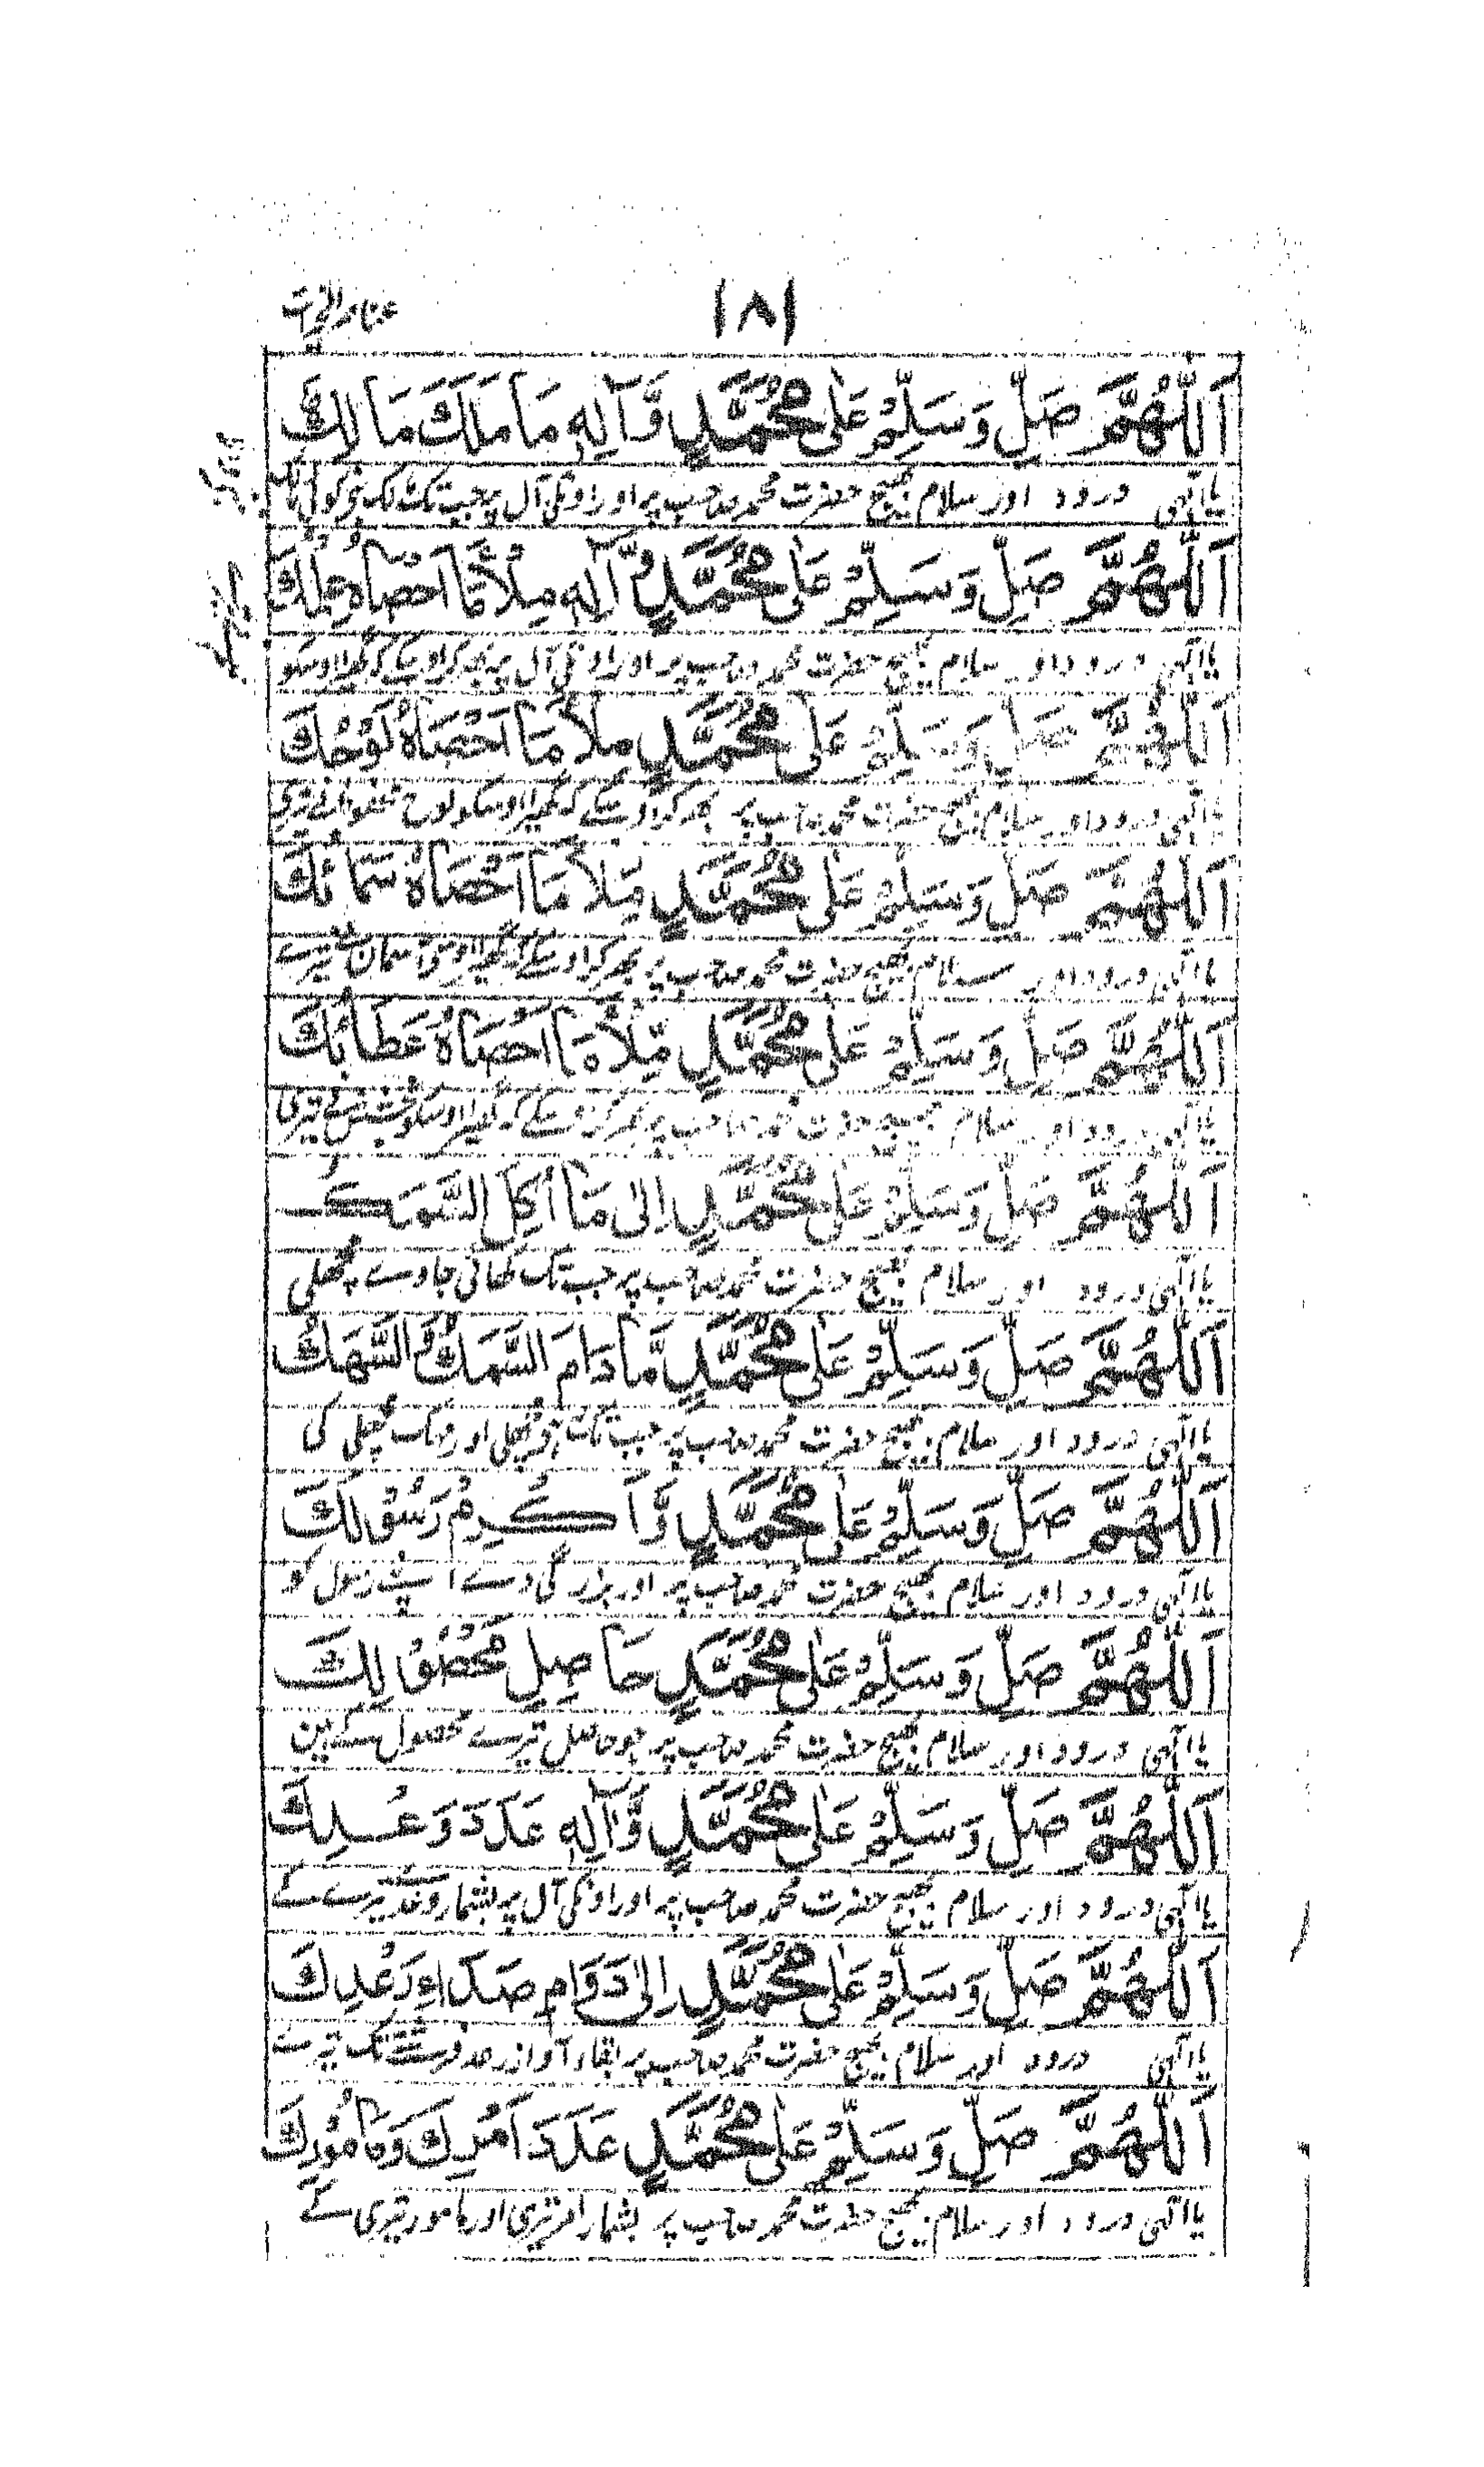 (۸)
اَللّٰهُمَّ صَلِّ وَسَلِّمْ عَلٰی مُحَمَّدٍ وَّاٰلِهٖ مَا مَلَكَ مَالِكٌ
یا الٰہی درود اور سلام بھیج حضرت محمد صاحب پر اور اونکی آل پر جب تک
اَللّٰهُمَّ صَلِّ وَسَلِّمْ عَلٰی مُحَمَّدٍ وَّاٰلِهٖ مِلْأَ مَا اَحْصَاهُ
یا الٰہی درود اور سلام بھیج حضرت محمد صاحب پر اور اونکی آل پر بھر کر اوسکے کہ گھیرا اوسکو
اَللّٰهُمَّ صَلِّ وَسَلِّمْ عَلٰی مُحَمَّدٍ مِلْأَ مَا اَحْصَاهُ لَوْحُكَ
یا الٰہی درود اور سلام بھیج حضرت محمد صاحب پر بھر کر اوسکے کہ گھیرا اوسکو لوح محفوظ نے تیری
اَللّٰهُمَّ صَلِّ وَسَلِّمْ عَلٰی مُحَمَّدٍ مِّلْأَ مَا اَحْصَاهُ سَمَائُكَ
یا الٰہی درود اور سلام بھیج حضرت محمد صاحب پر بھر کر اوسکے کہ گھیرا آسمان تیرے
اَللّٰهُمَّ صَلِّ وَسَلِّمْ عَلٰی مُحَمَّدٍ مِّلْأَ مَا اَحْصَاهُ عَطَائُكَ
یا الٰہی درود اور سلام بھیج حضرت محمد صاحب پر بھر کر اوسکے کہ گھیرا اوسکو بخشش نے تیری
اَللّٰهُمَّ صَلِّ وَسَلِّمْ عَلٰی مُحَمَّدٍ اِلٰی مَا اُكِلَ السَّمَكُ
یا الٰہی درود اور سلام بھیج حضرت محمد صاحب پر جب تک کھائی جاوے مچھلی
اَللّٰهُمَّ صَلِّ وَسَلِّمْ عَلٰی مُحَمَّدٍ مَّا دَامَ السَّمَكُ وَالسَّهَكُ
یا الٰہی درود اور سلام بھیج حضرت محمد صاحب پر جب تک مچھلی اور مہک مچھلی کی
اَللّٰهُمَّ صَلِّ وَسَلِّمْ عَلٰی مُحَمَّدٍ وَّاَكْرِمْ رَسُوْلَكَ
یا الٰہی درود اور سلام بھیج حضرت محمد صاحب پر اور بزرگی دے اپنے رسول کو
اَللّٰهُمَّ صَلِّ وَسَلِّمْ عَلٰی مُحَمَّدٍ حَاصِلِ مَحْصُوْلِكَ
یا الٰہی درود اور سلام بھیج حضرت محمد صاحب پر جو حاصل تیرے محصول کے ہین
اَللّٰهُمَّ صَلِّ وَسَلِّمْ عَلٰی مُحَمَّدٍ وَّاٰلِهٖ عَدَدَ وَعْدِكَ
یا الٰہی درود اور سلام بھیج حضرت محمد صاحب پر اور اونکی آل پر بشمار وعدے تیرے کے
اَللّٰهُمَّ صَلِّ وَسَلِّمْ عَلٰی مُحَمَّدٍ اِلٰی دَوَامِ صَدَاءِ رَعْدِكَ
یا الٰہی درود اور سلام بھیج حضرت محمد صاحب پر بقاء آواز رعد تک تیرے
اَللّٰهُمَّ صَلِّ وَسَلِّمْ عَلٰی مُحَمَّدٍ عَدَدَ اَمْرِكَ وَمَامُوْرِكَ
یا الٰہی درود اور سلام بھیج حضرت محمد صاحب پر بشمار امر تیری اور مامور تیری کے